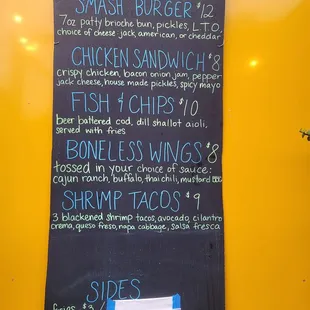 SMASH BURGER $12
7oz patty brioche bun, pickles, L.T.O,
choice of cheese: jack, american, or cheddar
CHICKEN SANDWICH $8
crispy chicken, bacon onion jam, pepper
jack cheese, house made pickles, spicy mayo
FISH & CHIPS $10
beer battered cod, dill shallot aioli,
served with fries
BONELESS WINGS $8
tossed in your choice of sauce:
cajun ranch, buffalo, thai chili, mustard BBQ
SHRIMP TACOS $9
3 blackened shrimp tacos, avocado, cilantro
crema, queso freso, napa cabbage, salsa fresca
SIDES
fries $3